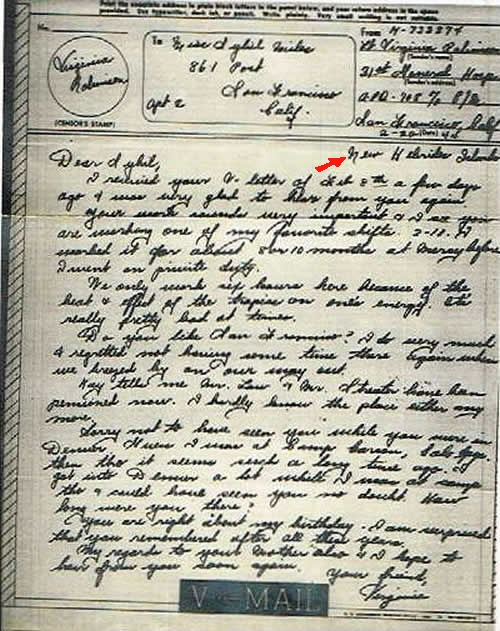 Print the complete address in plain block letters in the panel below, and your return address in the space
provided. Use typewriter, dark ink, or pencil. Write plainly. Very small writing is not suitable.
No.
Virginia
Robinson
(CENSOR'S STAMP)
To Miss Sybil Miles
861 Post
San Francisco
Apt 2 Calif.
From N-733374
Lt Virginia Robinson
(Sender's name)
31st General Hosp
(Sender's address)
APO 708 % P.M.
San Francisco, Calif
2-20 (Date) 44
New Hebrides Islands
Dear Sybil,
I received your V-letter of Feb 8th a few days
ago & was very glad to hear from you again
Your work sounds very important & I see you
are working one of my favorite shifts. 2-10. I
worked it for about 8 or 10 months at Mercy before
I went on private duty.
We only work six hours here because of the
heat & effect of the tropics on one's energy. It's
really pretty bad at times.
Do you like San Francisco? I do very much
& regretted not having some time there again when
we breezed by on our way out.
Kay tells me Mr. Law & Mr. Streater have been
pensioned now. I hardly know the place either any
more.
Sorry not to have seen you while you were in
Denver. Guess I was at Camp Carson, Colo Spgs.
then tho it seems such a long time ago. I
got into Denver a lot while I was at camp
tho & could have seen you no doubt. How
long were you there?
You are right about my birthday. I am surprised
that you remembered after all these years.
My regards to your Mother also & I hope to
hear from you soon again.
Your friend,
Virginia
V MAIL